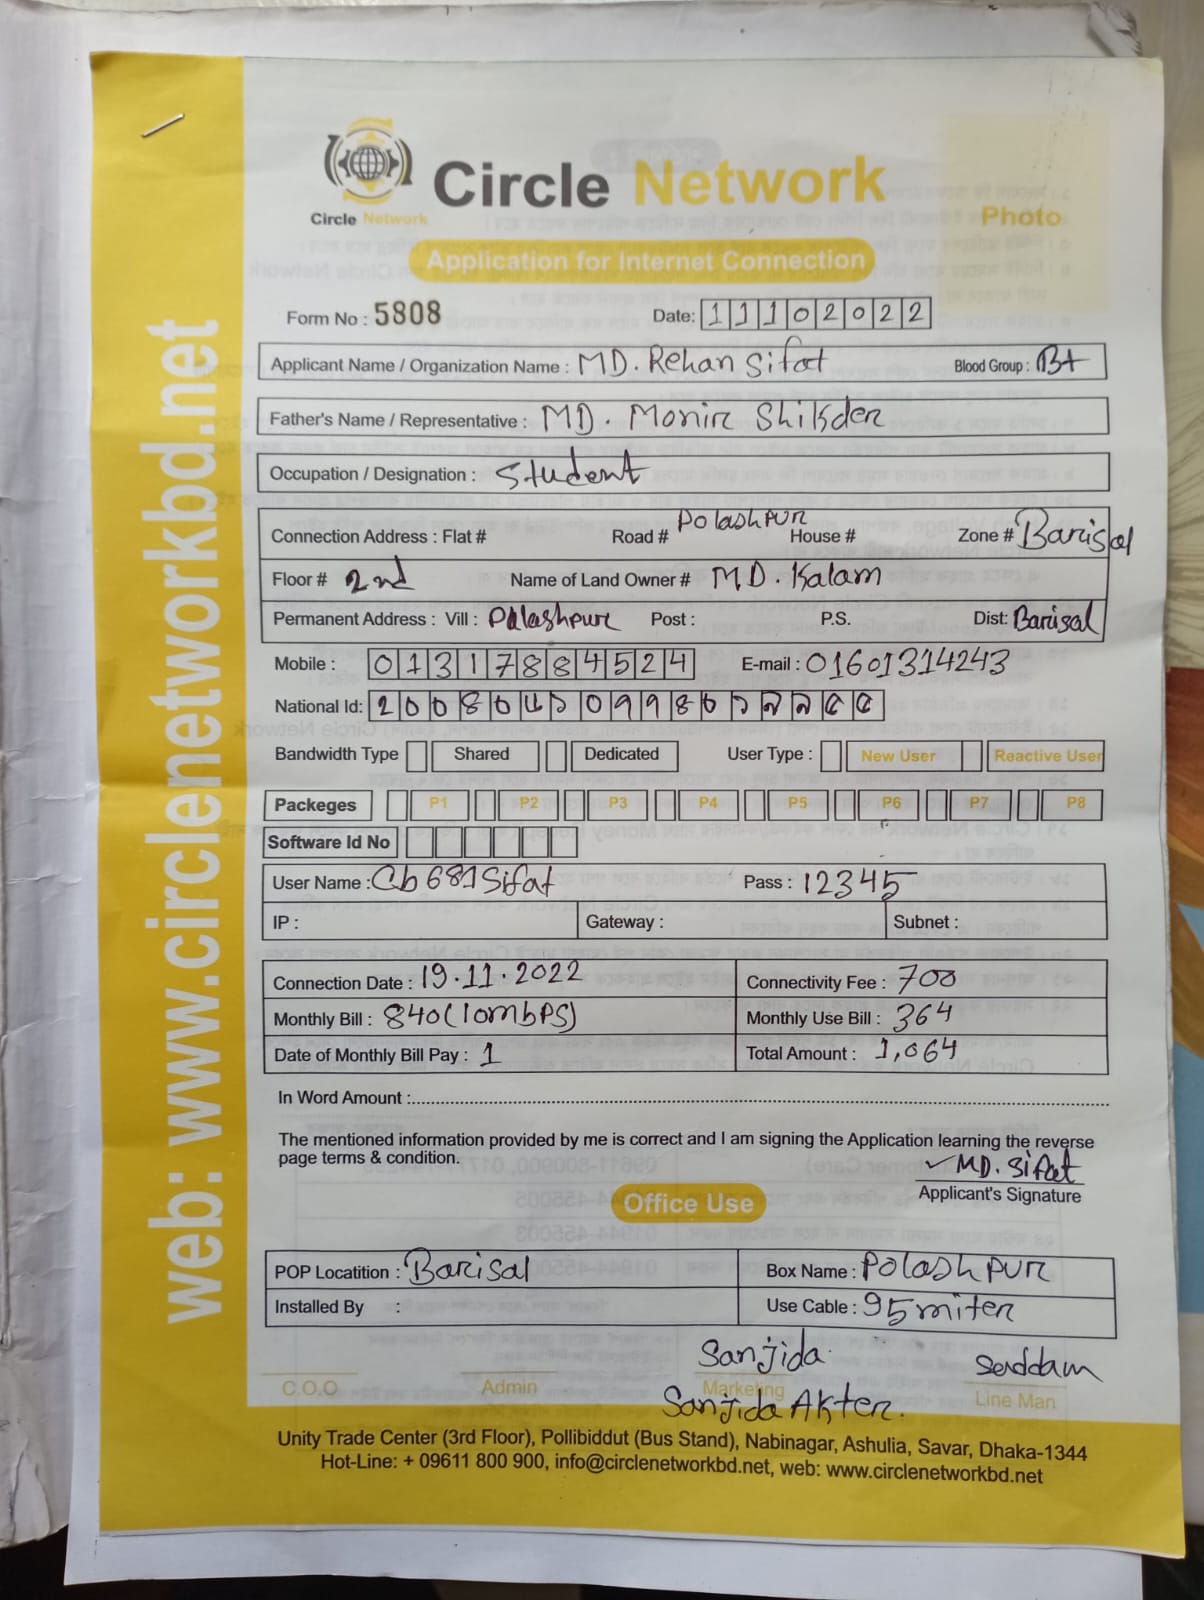 web: www.circlenetworkbd.net
Circle Network
Circle Network
Photo
Application for Internet Connection
Form No : 5808 Date: 11102022
Applicant Name / Organization Name : MD. Rehan Sifat Blood Group : B+
Father's Name / Representative : MD. Monir Shikder
Occupation / Designation : Student
Connection Address : Flat # Road # Polashpur House # Zone # Barisal
Floor # 2nd Name of Land Owner # MD. Kalam
Permanent Address : Vill : Palashpur Post : P.S. Dist: Barisal
Mobile : 01317884524 E-mail : 01601314243
National Id:
Bandwidth Type Shared Dedicated User Type : New User Reactive User
Packeges P1 P2 P3 P4 P5 P6 P7 P8
Software Id No
User Name : Cb681Sifat Pass : 12345
IP : Gateway : Subnet :
Connection Date : 19.11.2022 Connectivity Fee : 700
Monthly Bill : 840(10mbPS) Monthly Use Bill : 364
Date of Monthly Bill Pay : 1 Total Amount : 1,064
In Word Amount :
The mentioned information provided by me is correct and I am signing the Application learning the reverse
page terms & condition.
MD. Sifat
Applicant's Signature
Office Use
POP Locatition : Barisal Box Name : Polashpur
Installed By : Use Cable : 95 miter
Sanjida Saddam
C.O.O Admin Marketing Line Man
Sanjida Akter.
Unity Trade Center (3rd Floor), Pollibiddut (Bus Stand), Nabinagar, Ashulia, Savar, Dhaka-1344
Hot-Line: + 09611 800 900, info@circlenetworkbd.net, web: www.circlenetworkbd.net